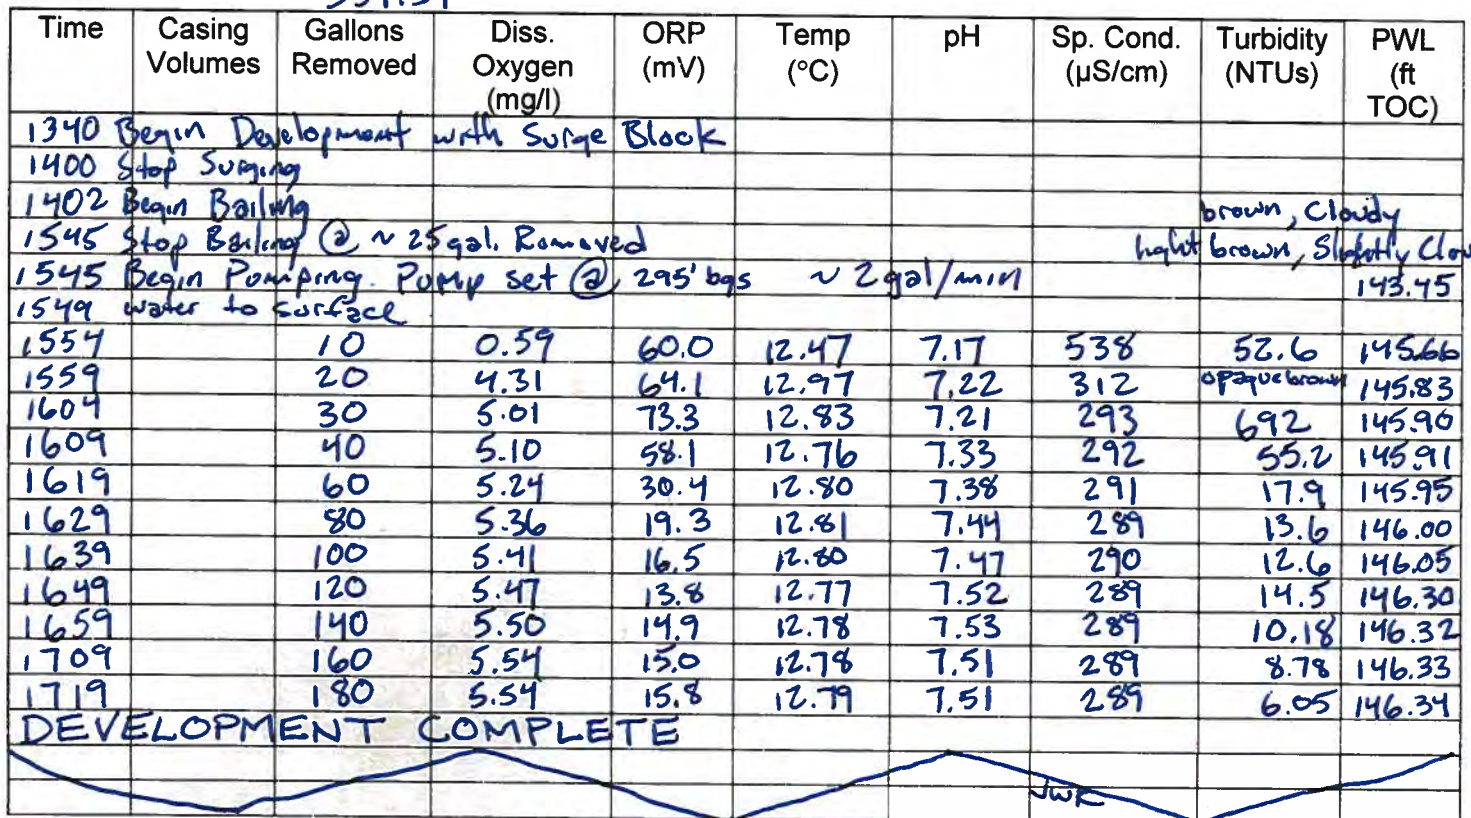 Time Casing Volumes Gallons Removed Diss. Oxygen (mg/l) ORP (mV) Temp (°C) pH Sp. Cond. (µS/cm) Turbidity (NTUs) PWL (ft TOC)
1340 Begin Development with Surge Block
1400 Stop Surging
1402 Begin Bailing brown, Cloudy
1545 Stop Bailing @ ~ 25 gal. Removed light brown, Slightly Clou
1545 Begin Pumping. Pump set @ 295' bgs ~ 2 gal/min 143.45
1549 water to surface
1554 10 0.59 60.0 12.47 7.17 538 52.6 145.66
1559 20 4.31 64.1 12.97 7.22 312 opaque brown 145.83
1604 30 5.01 73.3 12.83 7.21 293 692 145.90
1609 40 5.10 58.1 12.76 7.33 292 55.2 145.91
1619 60 5.24 30.4 12.80 7.38 291 17.9 145.95
1629 80 5.36 19.3 12.81 7.44 289 13.6 146.00
1639 100 5.41 16.5 12.80 7.47 290 12.6 146.05
1649 120 5.47 13.8 12.77 7.52 289 14.5 146.30
1659 140 5.50 14.9 12.78 7.53 289 10.18 146.32
1709 160 5.54 15.0 12.78 7.51 289 8.78 146.33
1719 180 5.54 15.8 12.79 7.51 289 6.05 146.34
DEVELOPMENT COMPLETE
JWK